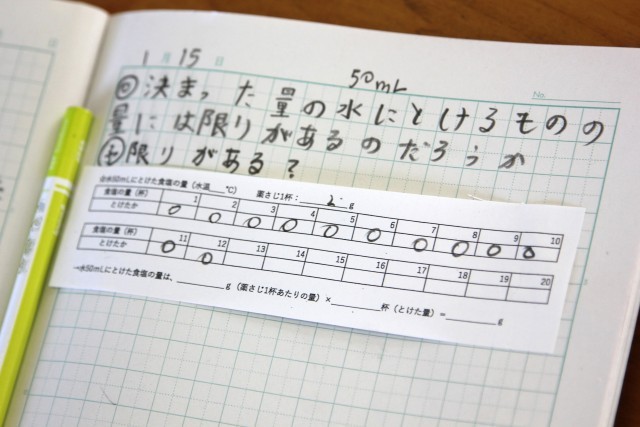 1月15日
No.
50mL
め 決まった量の水にとけるものの
量には限りがあるのだろうか
も 限りがある?
◎水50mLにとけた食塩の量(水温____℃) 薬さじ1杯:2g
食塩の量(杯) 1 2 3 4 5 6 7 8 9 10
とけたか ○ ○ ○ ○ ○ ○ ○ ○ ○ ○
食塩の量(杯) 11 12 13 14 15 16 17 18 19 20
とけたか ○ ○
→水50mLにとけた食塩の量は、________g(薬さじ1杯あたりの量)×________杯(とけた量)=________g